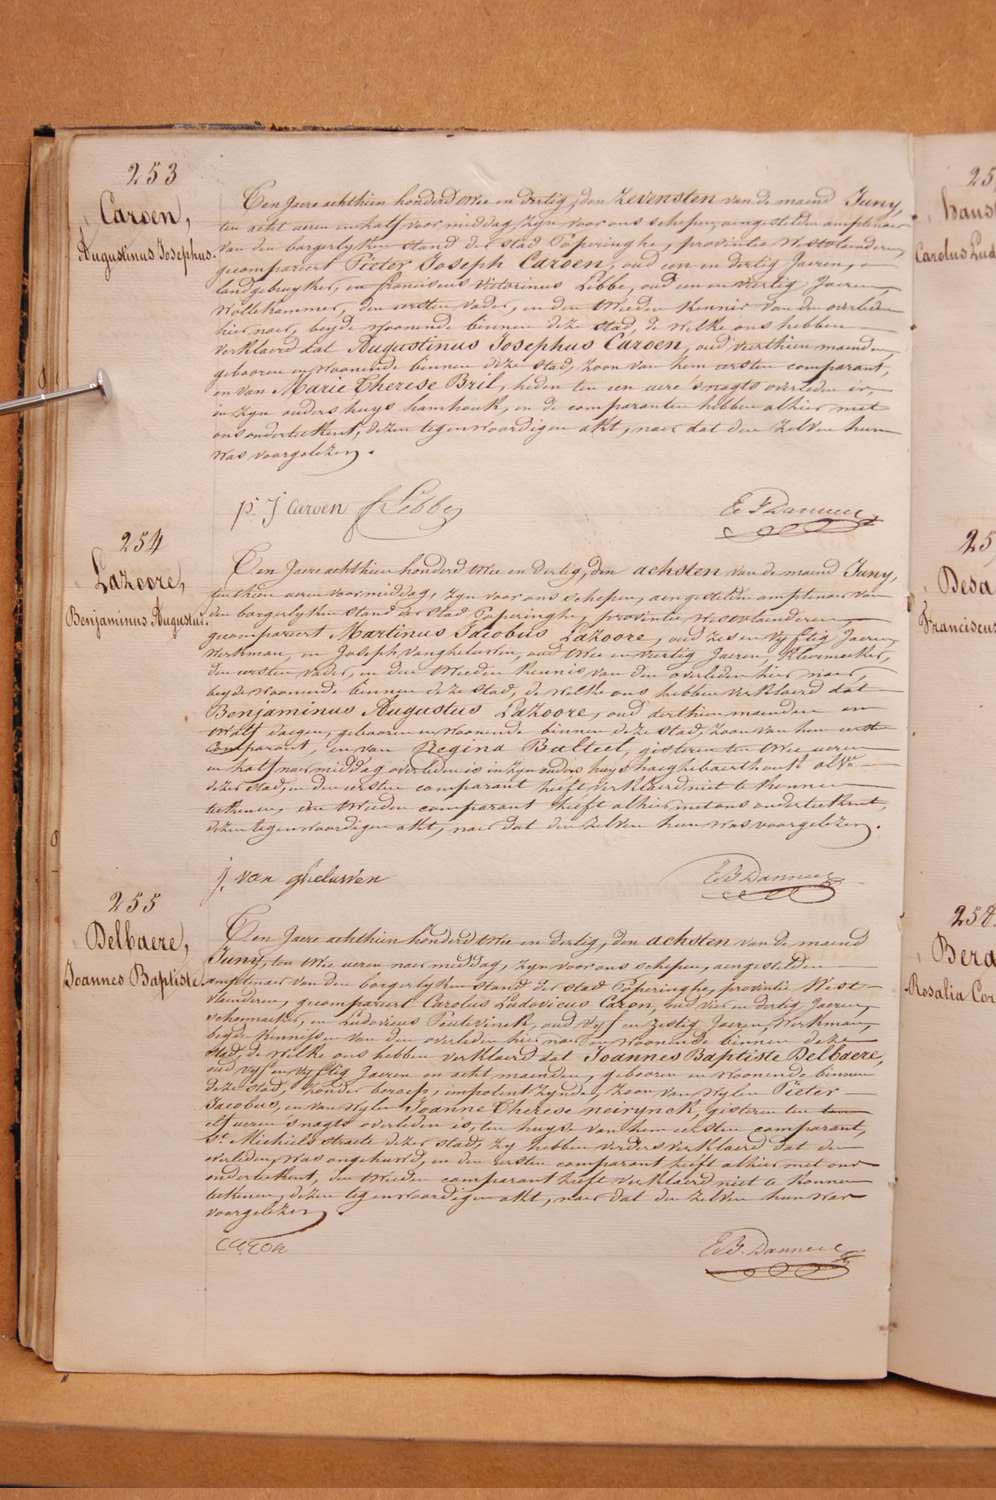 253
Caroen,
Augustinus Josephus.
Ten Jaere achthien honderd twee en dertig, den zevensten van de maend Juny,
ten acht ueren en half voor middag, zyn voor ons schepen, aengestelden amptenaer
van den borgerlyken stand der stad Poperinghe, provintie Westvlaenderen,
gecompareert Pieter Joseph Caroen, oud een en dertig Jaeren,
landgebruyker, en franciscus victorinus Lebbe, oud een en veertig Jaeren,
Wollekammer, den eersten vader, en den tweeden kennis van den overleden
hier naer, beyde woonende binnen deze stad, de welke ons hebben
verklaerd dat Augustinus Josephus Caroen, oud veerthien maenden,
gebooren en woonende binnen deze stad, zoon van hem eersten comparant,
en van Marie Therese Bril, heden ten een uere snagts overleden is,
in zyn ouders huys hamhoek, en de comparanten hebben alhier met
ons onderteekent, dezen tegenwoordigen akt, naer dat den zelven hun
was voorgelezen.
p. J caroen f Lebbe
254
Lazoore,
Benjaminus Augustus.
Ten Jaere achthien honderd twee en dertig, den achsten van de maend Juny,
tien ueren voor middag, zyn voor ons schepen, aengestelden amptenaer van
den borgerlyken stand der stad Poperinghe, provintie Westvlaenderen,
gecompareert Martinus Jacobus Lazoore, oud zes en vyftig Jaeren,
werkman, en Joseph vanghelurven, oud twee en veertig Jaeren, kleermaeker,
den eersten vader, en den tweeden kennis van den overleden hier naer,
beyde woonende binnen deze stad, de welke ons hebben verklaerd dat
Benjaminus Augustus Lazoore, oud derthien maenden en
twalf daegen, gebooren en woonende binnen deze stad, zoon van hem eerste
comparant, en van Regina Balteel, gisteren ten twee ueren
en half naer middag overleden is in zyn ouders huys haeghebaerthoek
dezer stad, en den eersten comparant heeft verklaerd niet te konnen
teekenen, den tweeden comparant heeft alhier met ons onderteekent,
dezen tegenwoordigen akt, naer dat den zelven hun was voorgelezen.
j. van ghelurven
255
Delbaere,
Joannes Baptiste.
Ten Jaere achthien honderd twee en dertig, den achsten van de maend
Juny, ten twee ueren naer middag, zyn voor ons schepen, aengestelden
amptenaer van den borgerlyken stand der stad Poperinghe, provintie West-
vlaenderen, gecompareert Carolus Ludovicus Caron, oud vier en dertig Jaeren,
schoenmaeker, en Ludovicus Peutevinck, oud vyf en zestig Jaeren, werkman,
beyde kennissen van den overleden hier naer en woonende binnen deze
stad, de welke ons hebben verklaerd dat Joannes Baptiste Delbaere,
oud vyf en vyftig Jaeren en acht maenden, gebooren en woonende binnen
deze stad, zonder beroep, impotent zynde, zoon van wylen Pieter
Jacobus, en van wylen Joanne Therese neirynck, gisteren ten
elf ueren 's nagts overleden is, ten huyse van hem eersten comparant,
St. Michiels straete dezer stad, zy hebben verders verklaerd dat den
overleden was ongehuwd, en den eersten comparant heeft alhier met ons
onderteekent, den tweeden comparant heeft verklaerd niet te konnen
teekenen, dezen tegenwoordigen akt, naer dat den zelven hun was
voorgelezen.
caron
25
Carolus Lud
25
Desa
Franciscus
258.
Bera
Rosalia Cor